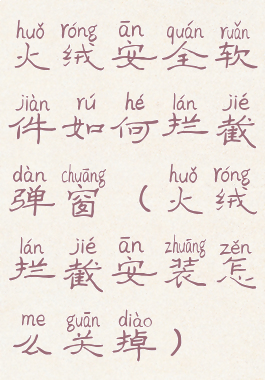 huǒ róng ān quán ruǎn
火绒安全软
jiàn rú hé lán jié
件如何拦截
dàn chuāng huǒ róng
弹窗（火绒
lán jié ān zhuāng zěn
拦截安装怎
me guān diào
么关掉）